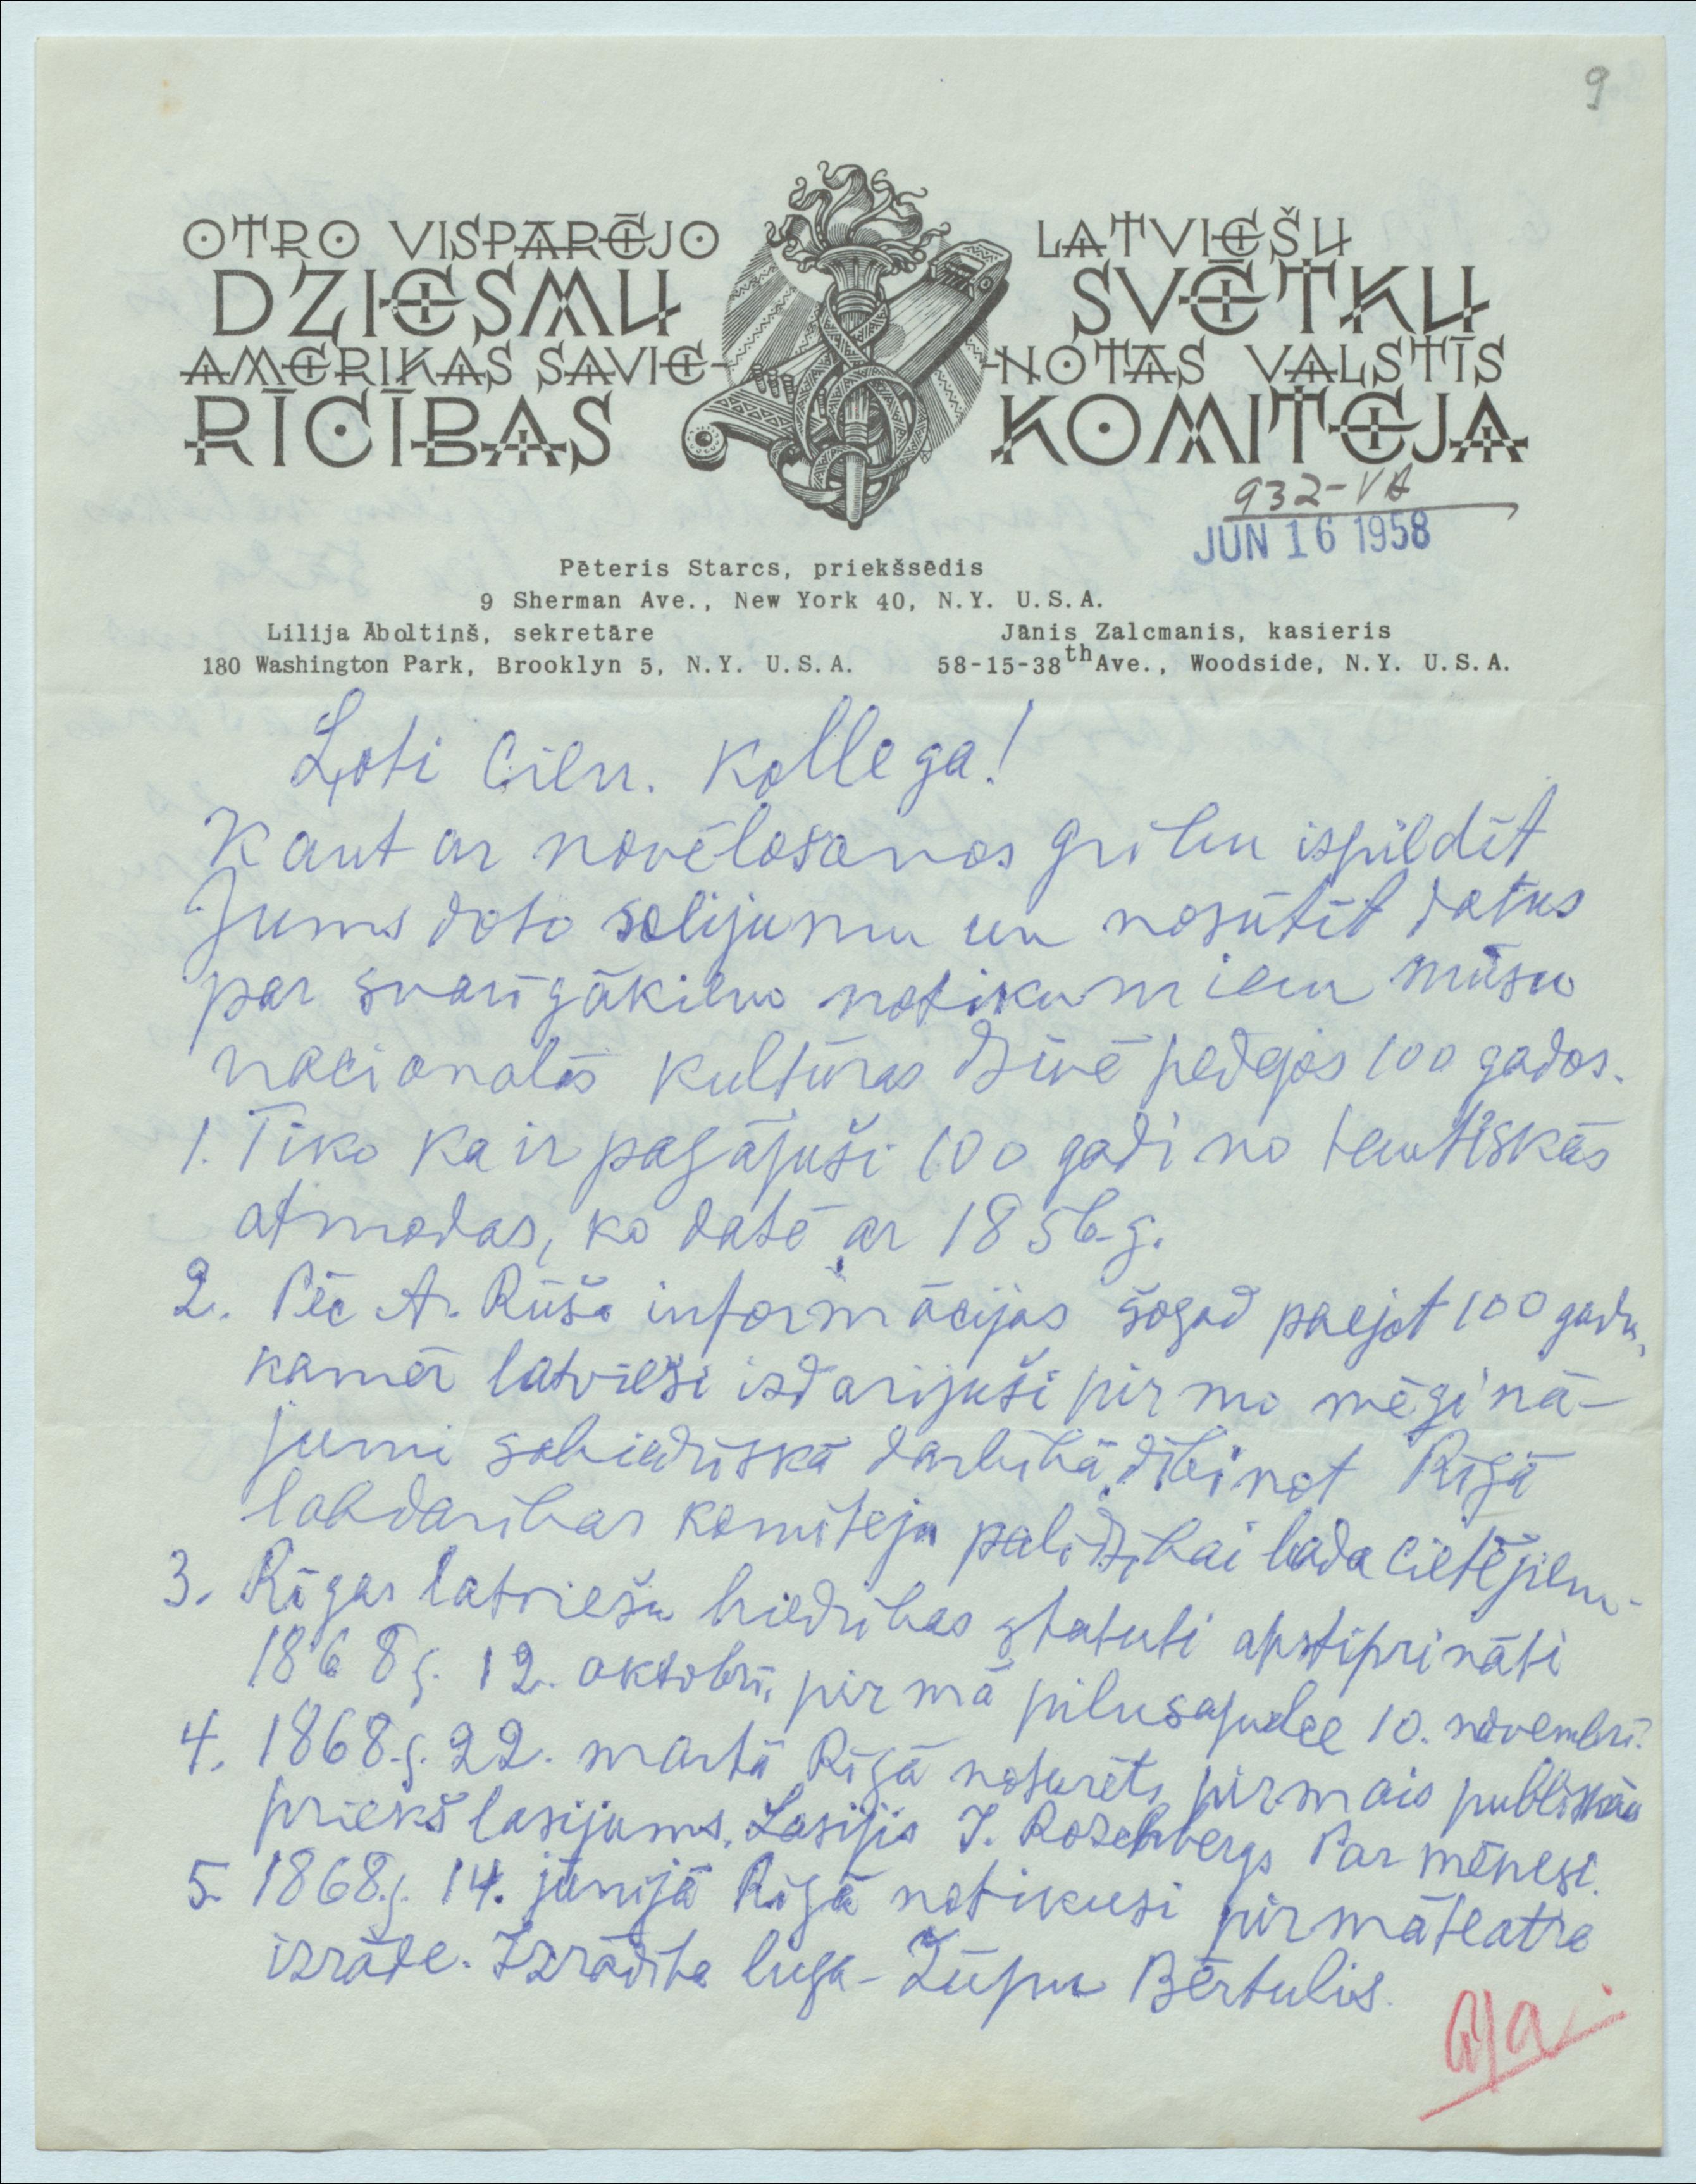 9
OTRO VISPĀRĒJO LATVIEŠU
DZIESMU SVĒTKU
AMERIKAS SAVIE- -NOTĀS VALSTĪS
RĪCĪBAS KOMITEJA
932-VA
JUN 16 1958
Pēteris Starcs, priekšsēdis
9 Sherman Ave., New York 40, N.Y. U.S.A.
Lilija Āboltiņš, sekretāre Jānis Zalcmanis, kasieris
180 Washington Park, Brooklyn 5, N.Y. U.S.A. 58-15-38th Ave., Woodside, N.Y. U.S.A.
Ļoti cien. kollega!
Kaut ar novēlošanos gribu ispildīt
Jums doto solijumu un nosūtīt datus
par svarīgākiem notikumiem mūsu
nacionalās kultūras dzīvē pedejos 100 gados.
1. Tiko ka ir pagājuši 100 gadi no tautiskās
atmodas, ko datē ar 1856.g.
2. Pēc A. Rūša informācijas šogad paejot 100 gadu,
kamēr latvieši izdarijuši pirmo mēģinā-
jumi sabiedriskā darbibā, dibinot Rīgā
labdaribas komiteju palidzibai bada cietējiem.
3. Rīgas latviešu biedribas statuti apstiprināti
1868 g. 12. oktobrī, pirmā pilnsapulce 10. novembrī.
4. 1868.g. 22. martā Rīgā noturēts pirmais publiskais
priekšlasijums. Lasijis J. Rozenbergs Par mēnesi.
5. 1868.g. 14. jūnijā Rīgā notikusi pirmā teatra
izrāde. Izrādita luga - Žūpu Bērtulis.